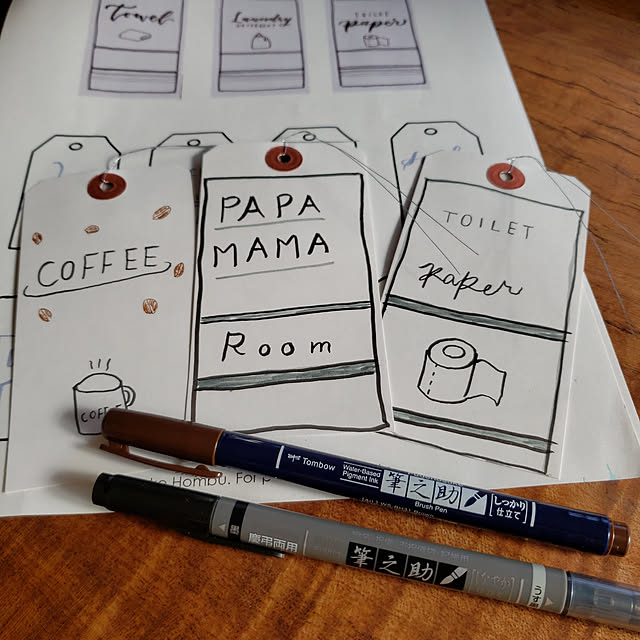 Towel
Laundry
TOILET
paper
COFFEE
PAPA
MAMA
Room
TOILET
paper
Tombow
Water-Based
Pigment Ink
筆之助
Brush Pen
しっかり
仕立て
Hombu. For p
慶弔両用
筆之助